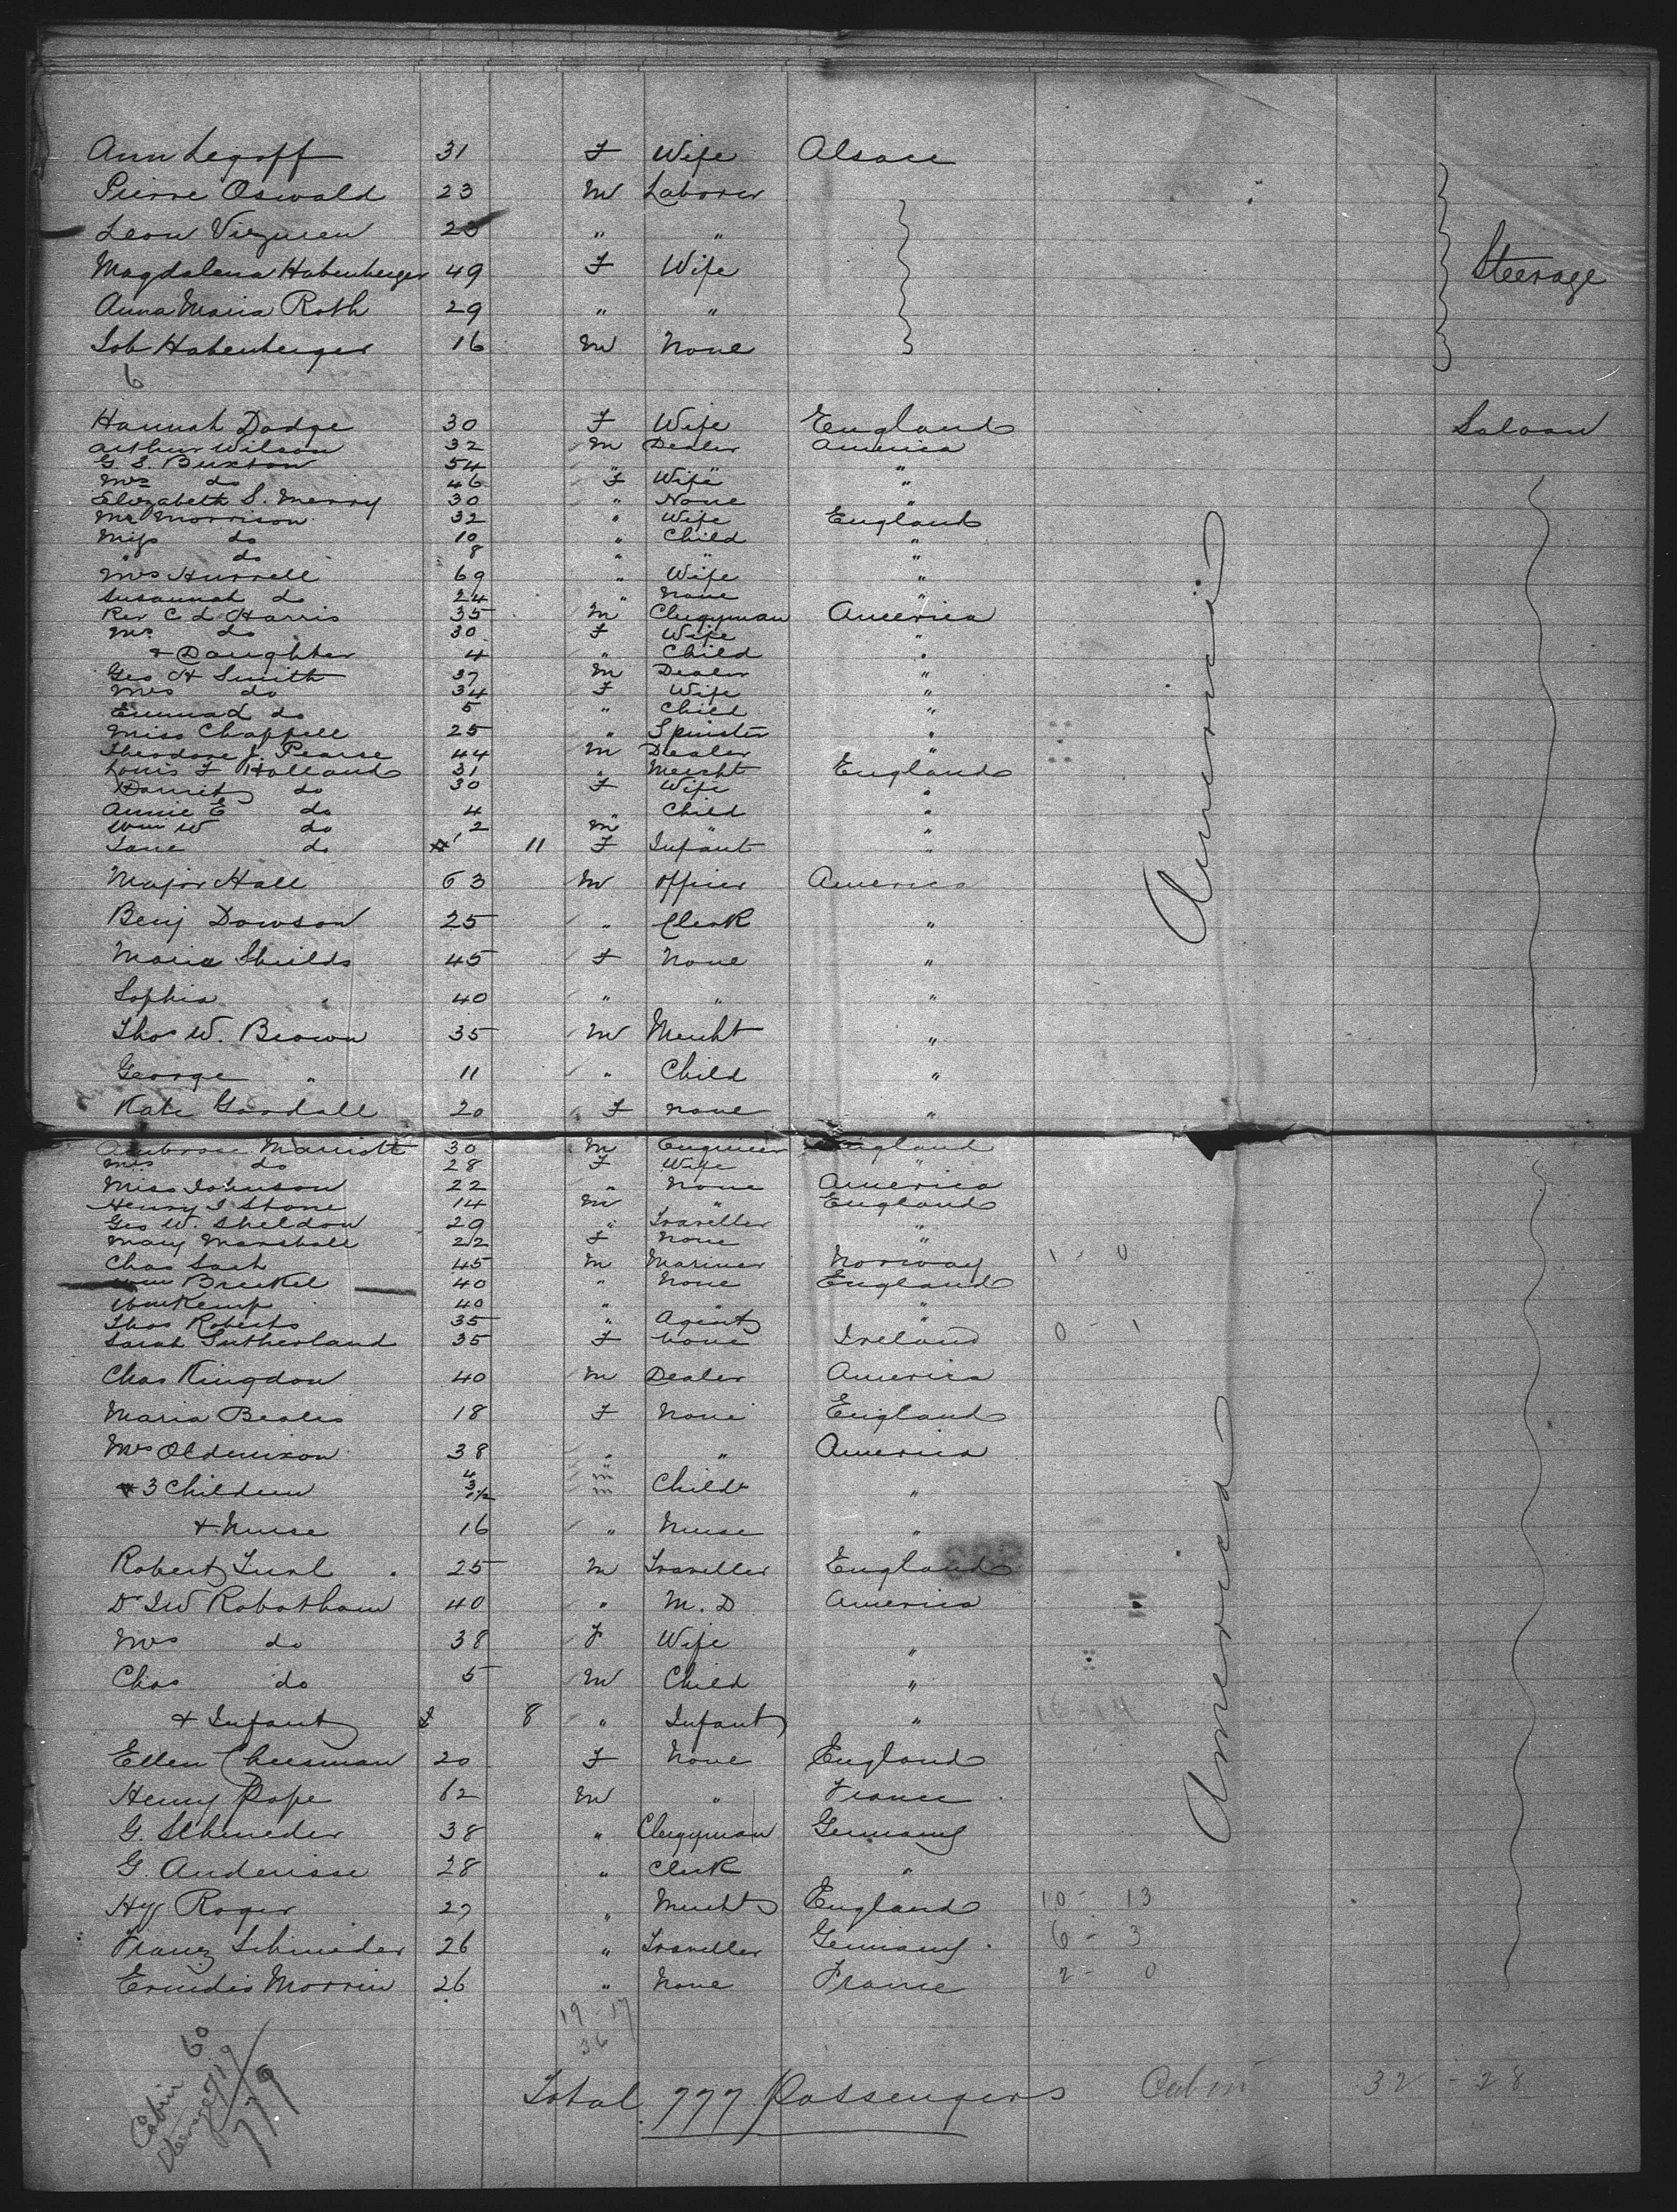 Ann Legoff 31 F Wife Alsace
Pierre Oswald 23 M Laborer
Leon 23 " "
Magdalena Habenberger 49 F Wife Steerage
Anna Maria Roth 29 " "
Job Habenberger 16 M None
6
Hannah Dodge 30 F Wife England Saloon
Arthur Wilson 32 M Dealer America
G. S. Buxton 54 " " "
Mrs do 46 F Wife "
Elizabeth S. Merry 30 " None "
Mr Morrison 32 " Wife England
Miss do 10 " Child "
" do 8 " " "
Mrs Hurrell 69 " Wife "
Susannah do 24 " None "
Rev C L Harris 35 M Clergyman America
Mrs do 30 F Wife "
+ Daughter 4 " Child "
Geo H Smith 37 M Dealer "
Mrs do 34 F Wife "
Emma L do 5 " Child "
Miss Chappell 25 " Spinster "
Theodore J. Pearse 44 M Dealer "
Louis F Holland 31 " Mercht England
Harriet do 30 F Wife "
Annie E do 4 " Child "
Wm W do 2 M " "
Jane do 11 F Infant "
America
Major Hall 63 M Officer America
Benj Dowson 25 " Clerk "
Maria Shields 45 F None "
Sophia " 40 " " "
Thos W. Brown 35 M Mercht "
George " 11 " Child "
Kate Goodall 20 F None "
Ambrose Marriott 30 M Engineer England
Mrs do 28 F Wife "
Miss Johnson 22 " None America
Henry J Stone 14 M " England
Geo W. Sheldon 29 " Traveller "
Mary Marshall 22 F None "
Chas Sach 45 M Mariner Norway 1 - 0
Wm Breckel 40 " None England
Wm Kemp 40 " " "
Thos Roberts 35 " Agent "
Sarah Sutherland 35 F None Ireland 0 - 1
Chas Kingdon 40 M Dealer America
Maria Beales 18 F None England
Mrs Oldenixon 38 " " America
+ 3 Children 4 3 1/2 " m m Child "
+ Nurse 16 " Nurse "
Robert 25 M Traveller England
Dr J W Robotham 40 " M. D America
Mrs do 38 F Wife "
Chas do 5 M Child "
+ Infant 8 " Infant " 16 - 14
America
Ellen Cheesman 20 F None England
Henry Pope 62 M " France
G. Schneder 38 " Clergyman Germany
G. Anderisse 28 " Clerk "
Hy Roger 27 " Mercht England 10 - 13
Franz Schneider 26 " Traveller Germany 6 - 3
Morrin 26 " None France 2 - 0
19 - 17
36
Cabin 60
Steerage 719
779
Total 777 Passengers Cabin 32 - 28